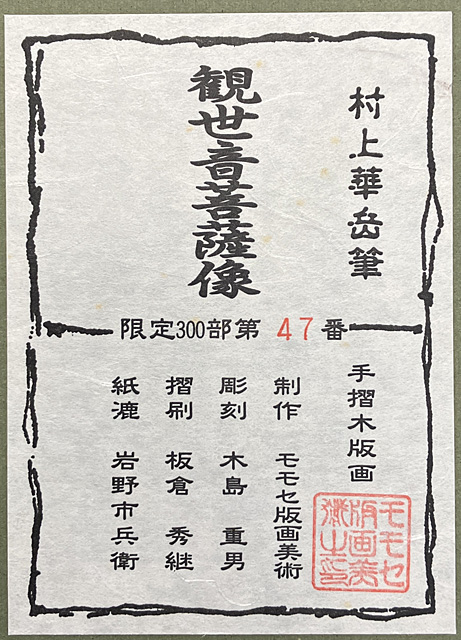 村上華岳筆
観世音菩薩像
限定300部第 47 番
手摺木版画
制作 モモセ版画美術
彫刻 木島 重男
摺刷 板倉 秀継
紙漉 岩野市兵衛
モモセ
版画美